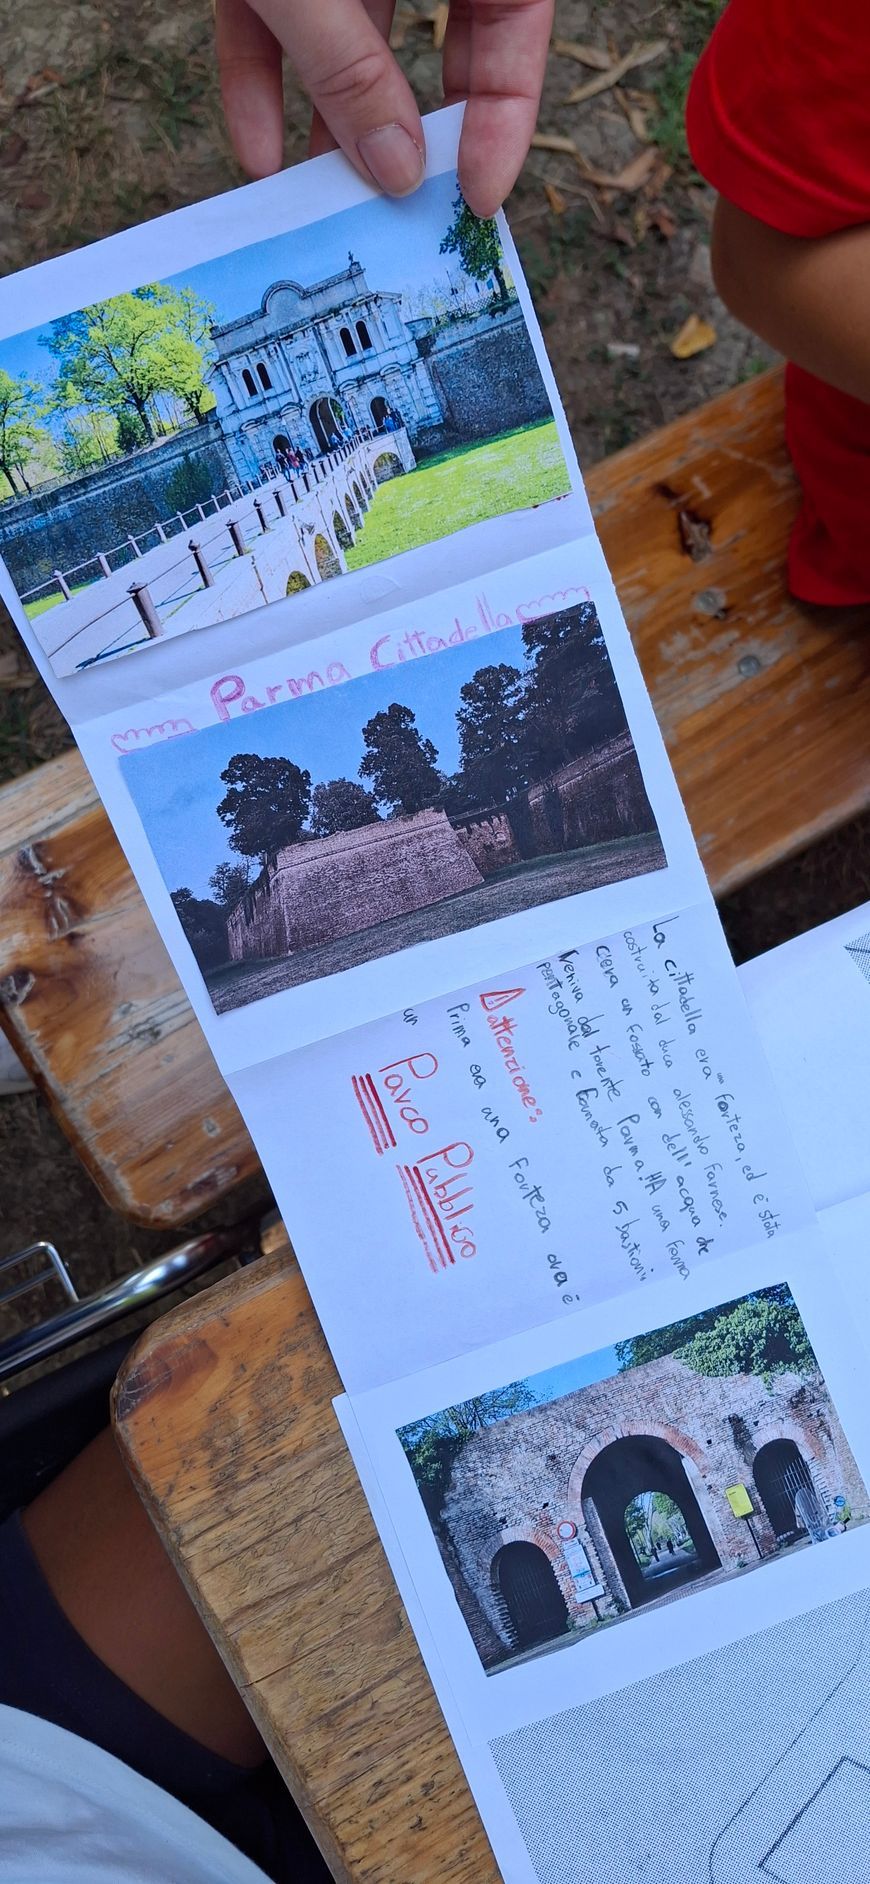 Parma Cittadella
La cittadella era un forteza, ed è stata
costruita dal duca alesandro Farnese.
C'era un fossato con dell' acqua che
veniva dal torente Parma. HA una forma
pentagonale e formata da 5 bastioni
⚠ attenzione:
Prima era una forteza ora è
un Parco Pubblico